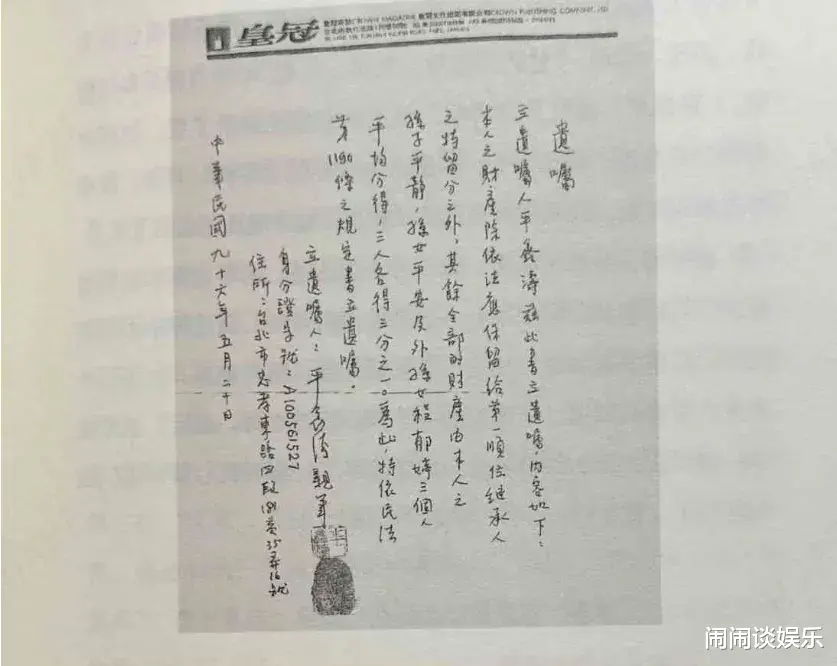 皇冠
皇冠雜誌CROWN MAGAZINE 皇冠文化出版有限公司CROWN PUBLISHING COMPANY, LTD.
遺囑
立遺囑人平鑫濤茲此書立遺囑,內容如下:
本人之財產除依法應保留給第一順位繼承人
之特留分之外,其餘全部的財產由本人之
孫子平靜,孫女平安及外孫女程郁婷三個人
平均分得,三人各得三分之一。為此,特依民法
第1190條之規定書立遺囑。
立遺囑人:平鑫濤親筆
身分證字號:A100561527
住所:台北市忠孝東路四段181巷35弄16號
中華民國九十六年五月二十日
闹闹谈娱乐